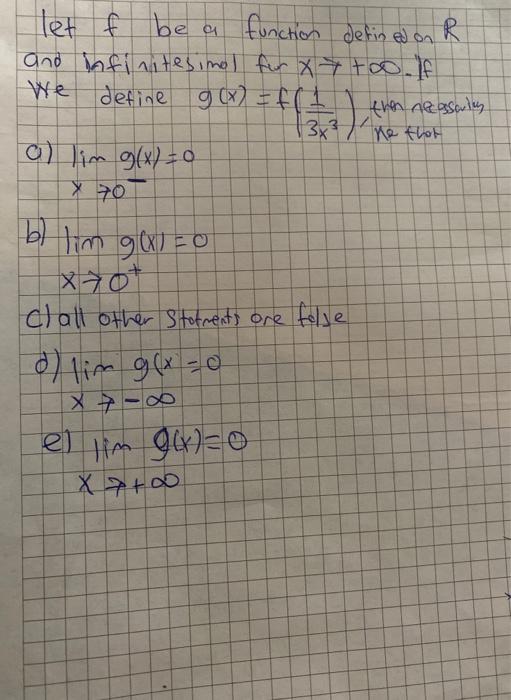 let f be a function defined on R
and infinitesimal for x → +∞. If
We define g(x) = f(1/3x³), then necessarily
a) lim g(x) = 0
x → 0⁻
b) lim g(x) = 0
x → 0⁺
c) all other Statments are false
d) lim g(x = 0
x → -∞
e) lim g(x) = 0
x → +∞